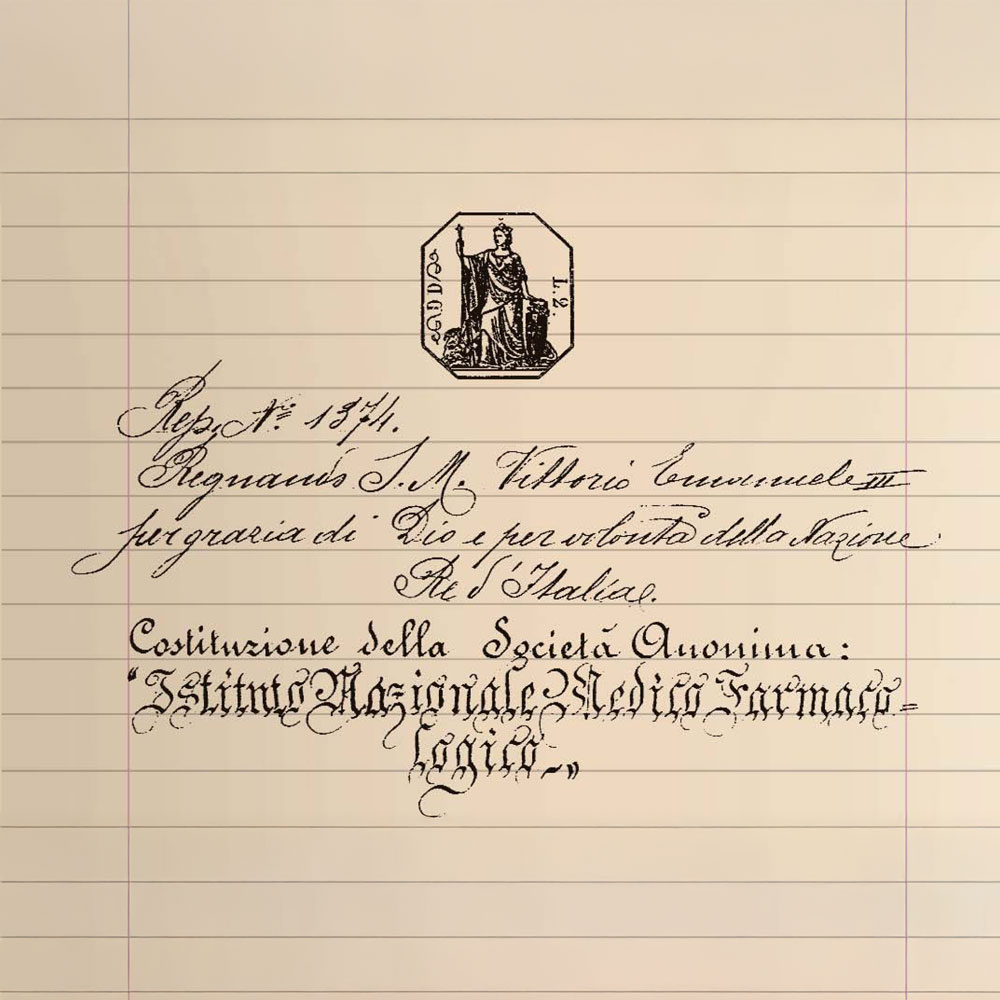 L. 2.
Rep. Nº 1374.
Regnando S. M. Vittorio Emanuele III
per grazia di Dio e per volontà della Nazione
Re d'Italia.
Costituzione della Società Anonima:
"Istituto Nazionale Medico Farmaco=
logico„